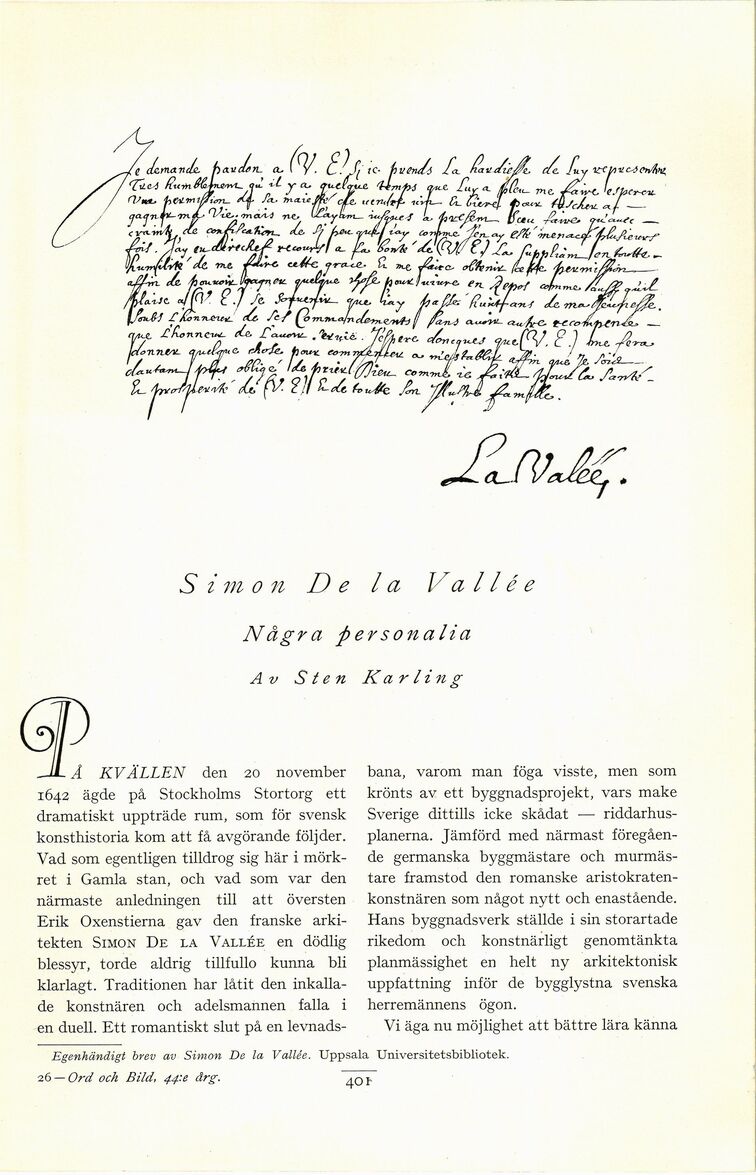 Je demande pardon a (V. E.) si ie prends La hardiesse de Luy representer
Tres humblement qu'il y a quelque temps que Luy a pleu me faire esperer
Une permission de sa maiesté de vendre vin Et biere pour tascher a
gagner ma Vie mais ne L'ayam iusques a presem Sceu faire qu'auec
crainte de confiscation de si peu que iay comme J'en ay esté menacé plusieurs
fois. J'ay eu derechef recours a La bonté de (V. E.) La Suppliam en toutte
humilité de me faire cette grace Et me faire obtenir cette permission
affin de pouuoir gagner quelque chose pour uiure en Repos comme aussy qu'il
plaise a (V. E.) Se Souuenir que iay passé huit ans de ma Jeunesse.
Soubs L'honneur de Ses Commandements Sans auoir autre recompense
que L'honneur de L'auoir seruie. J'espere doncques que (V. E.) me fera
donner quelque chose pour commencer a m'establir affin que Je Sois
dautam plus obligé de prier Dieu comme ie faits pour La Santé
Et prosperité de (V. E.) Et de toutte Son Jllustre famille.
La Valée.
Simon De la Vallée
Några personalia
Av Sten Karling
PÅ KVÄLLEN den 20 november
1642 ägde på Stockholms Stortorg ett
dramatiskt uppträde rum, som för svensk
konsthistoria kom att få avgörande följder.
Vad som egentligen tilldrog sig här i mörk-
ret i Gamla stan, och vad som var den
närmaste anledningen till att översten
Erik Oxenstierna gav den franske arki-
tekten SIMON DE LA VALLÉE en dödlig
blessyr, torde aldrig tillfullo kunna bli
klarlagt. Traditionen har låtit den inkalla-
de konstnären och adelsmannen falla i
en duell. Ett romantiskt slut på en levnads-
bana, varom man föga visste, men som
krönts av ett byggnadsprojekt, vars make
Sverige dittills icke skådat — riddarhus-
planerna. Jämförd med närmast föregåen-
de germanska byggmästare och murmäs-
tare framstod den romanske aristokraten-
konstnären som något nytt och enastående.
Hans byggnadsverk ställde i sin storartade
rikedom och konstnärligt genomtänkta
planmässighet en helt ny arkitektonisk
uppfattning inför de bygglystna svenska
herremännens ögon.
Vi äga nu möjlighet att bättre lära känna
Egenhändigt brev av Simon De la Vallée. Uppsala Universitetsbibliotek.
26 — Ord och Bild, 44:e årg.
401